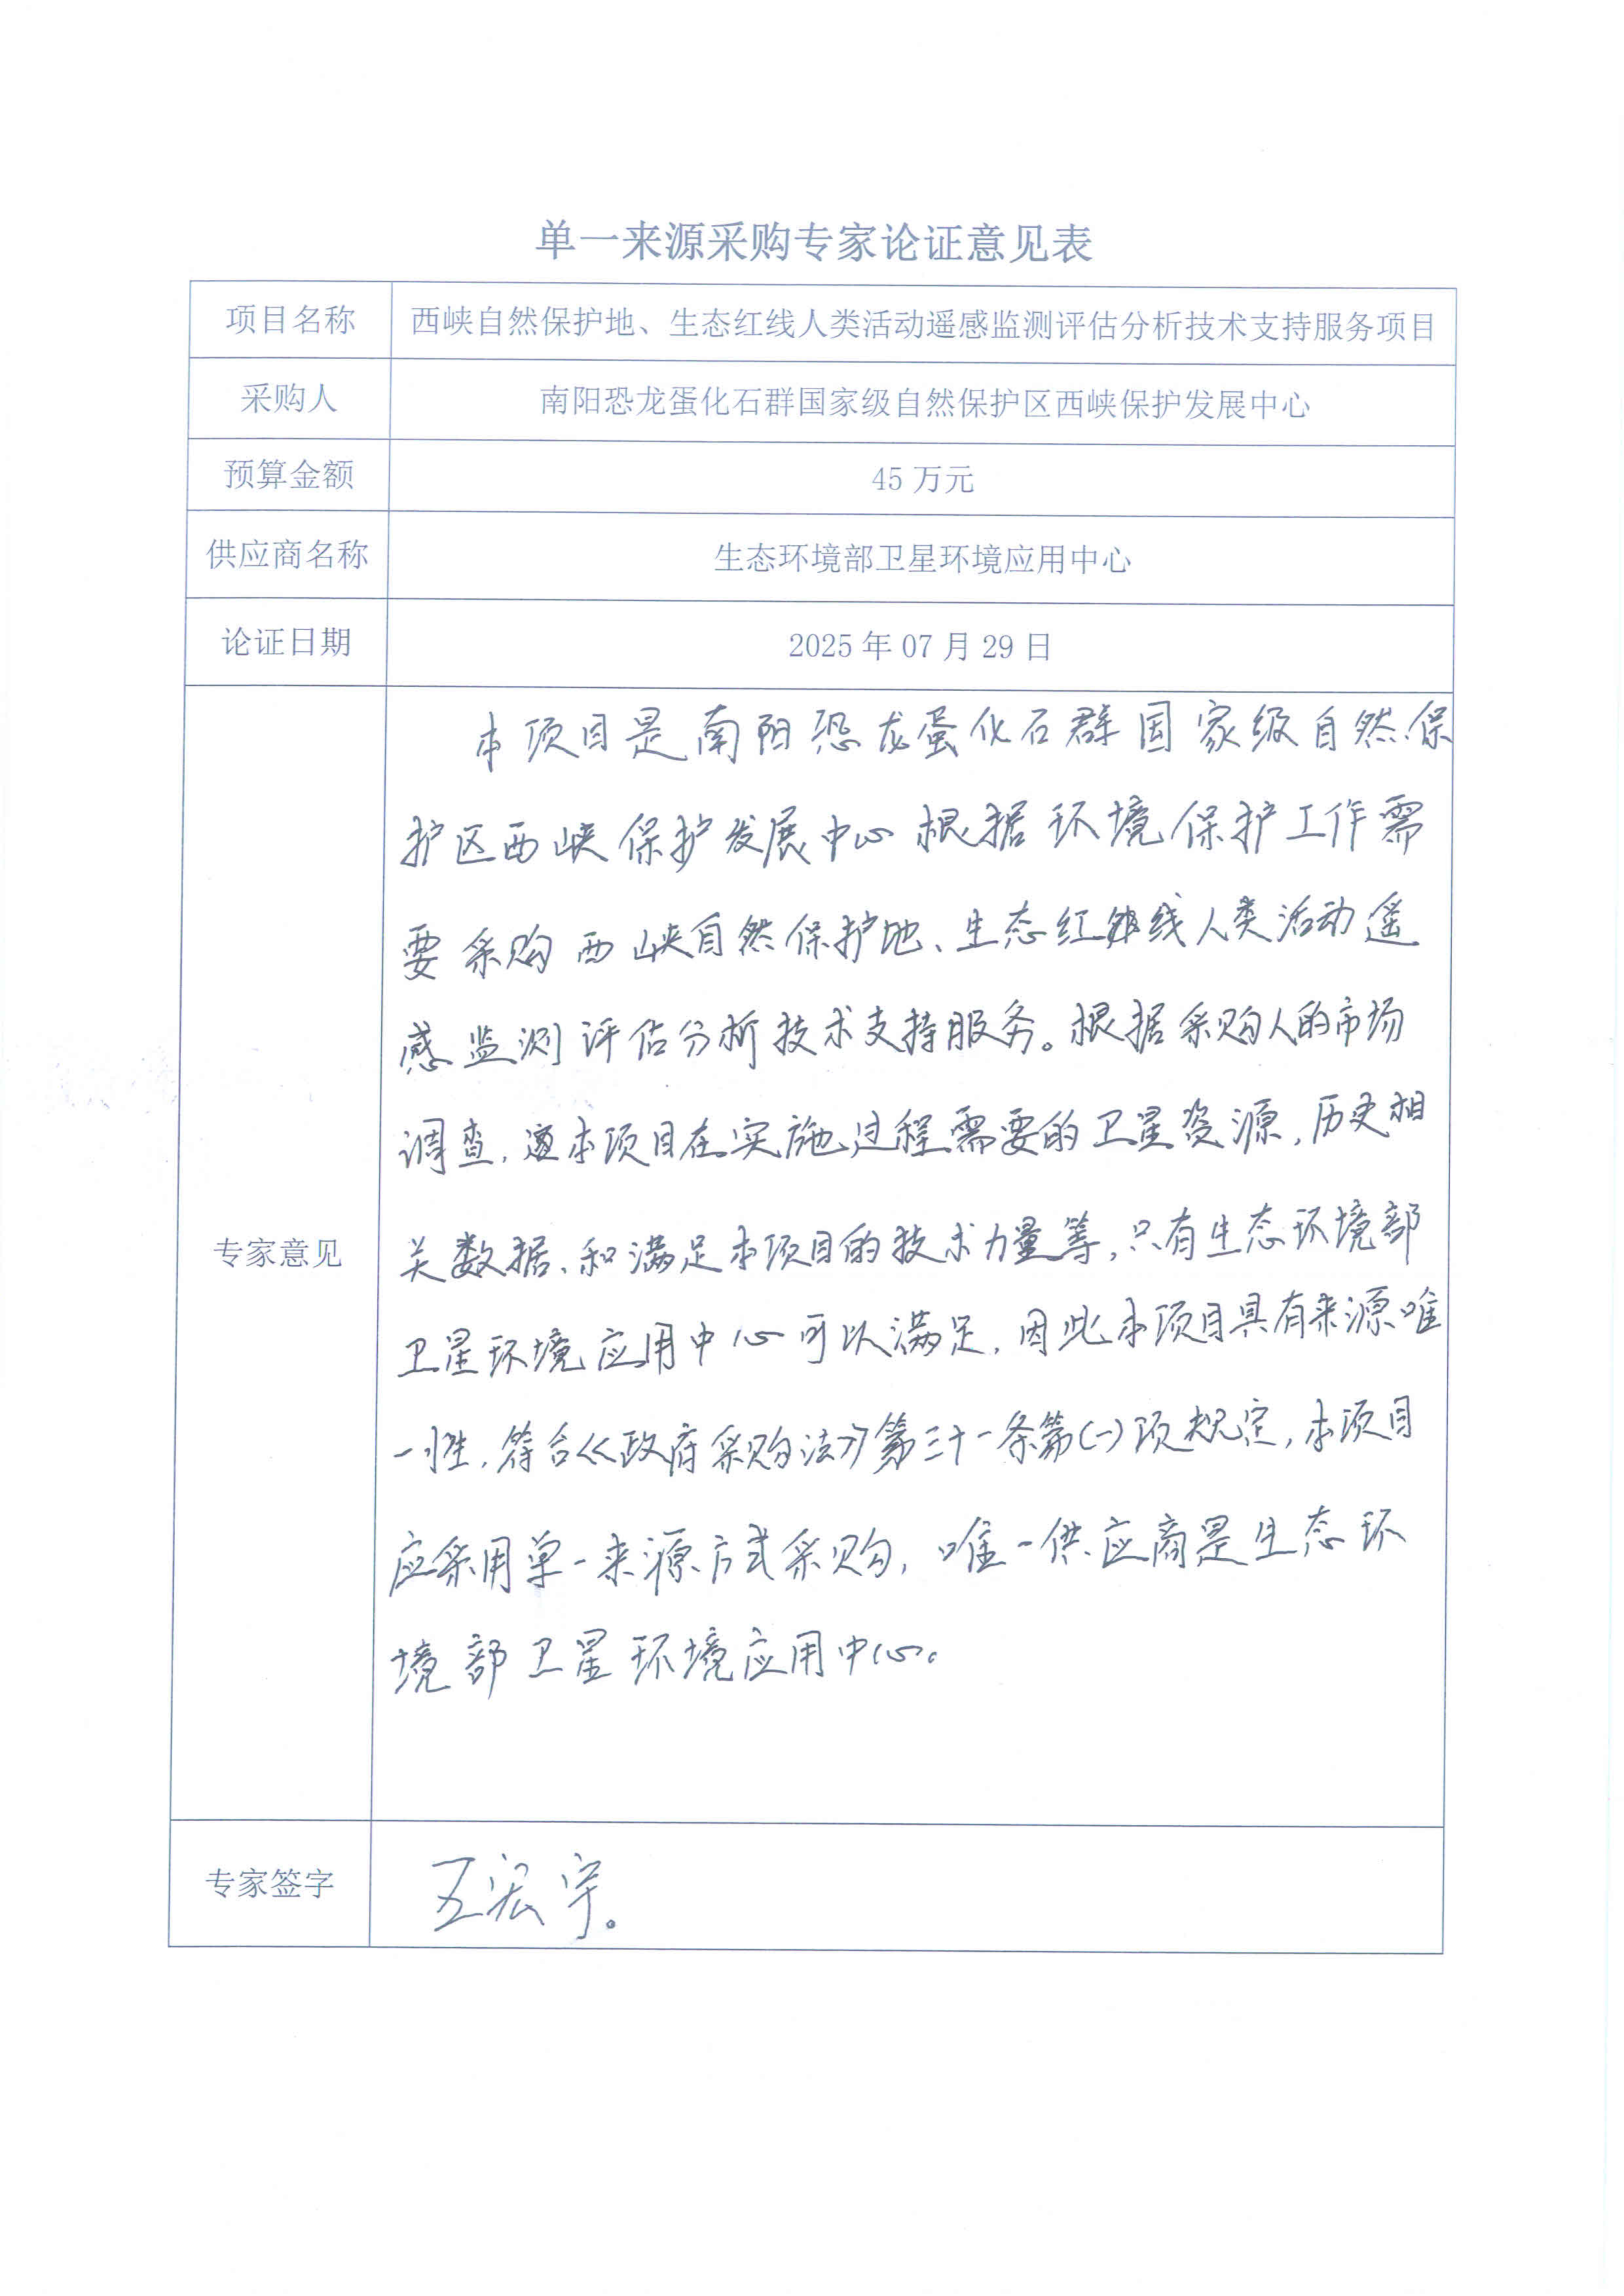 单一来源采购专家论证意见表
项目名称 西峡自然保护地、生态红线人类活动遥感监测评估分析技术支持服务项目
采购人 南阳恐龙蛋化石群国家级自然保护区西峡保护发展中心
预算金额 45万元
供应商名称 生态环境部卫星环境应用中心
论证日期 2025年07月29日
专家意见
本项目是南阳恐龙蛋化石群国家级自然保
护区西峡保护发展中心根据环境保护工作需
要采购西峡自然保护地、生态红线人类活动遥
感监测评估分析技术支持服务。根据采购人的市场
调查,本项目在实施过程需要的卫星资源,历史相
关数据、和满足本项目的技术力量等,只有生态环境部
卫星环境应用中心可以满足,因此本项目具有来源唯
一性,符合《政府采购法》第三十一条第(一)项规定,本项目
应采用单一来源方式采购,唯一供应商是生态环
境部卫星环境应用中心。
专家签字 王宏宇。